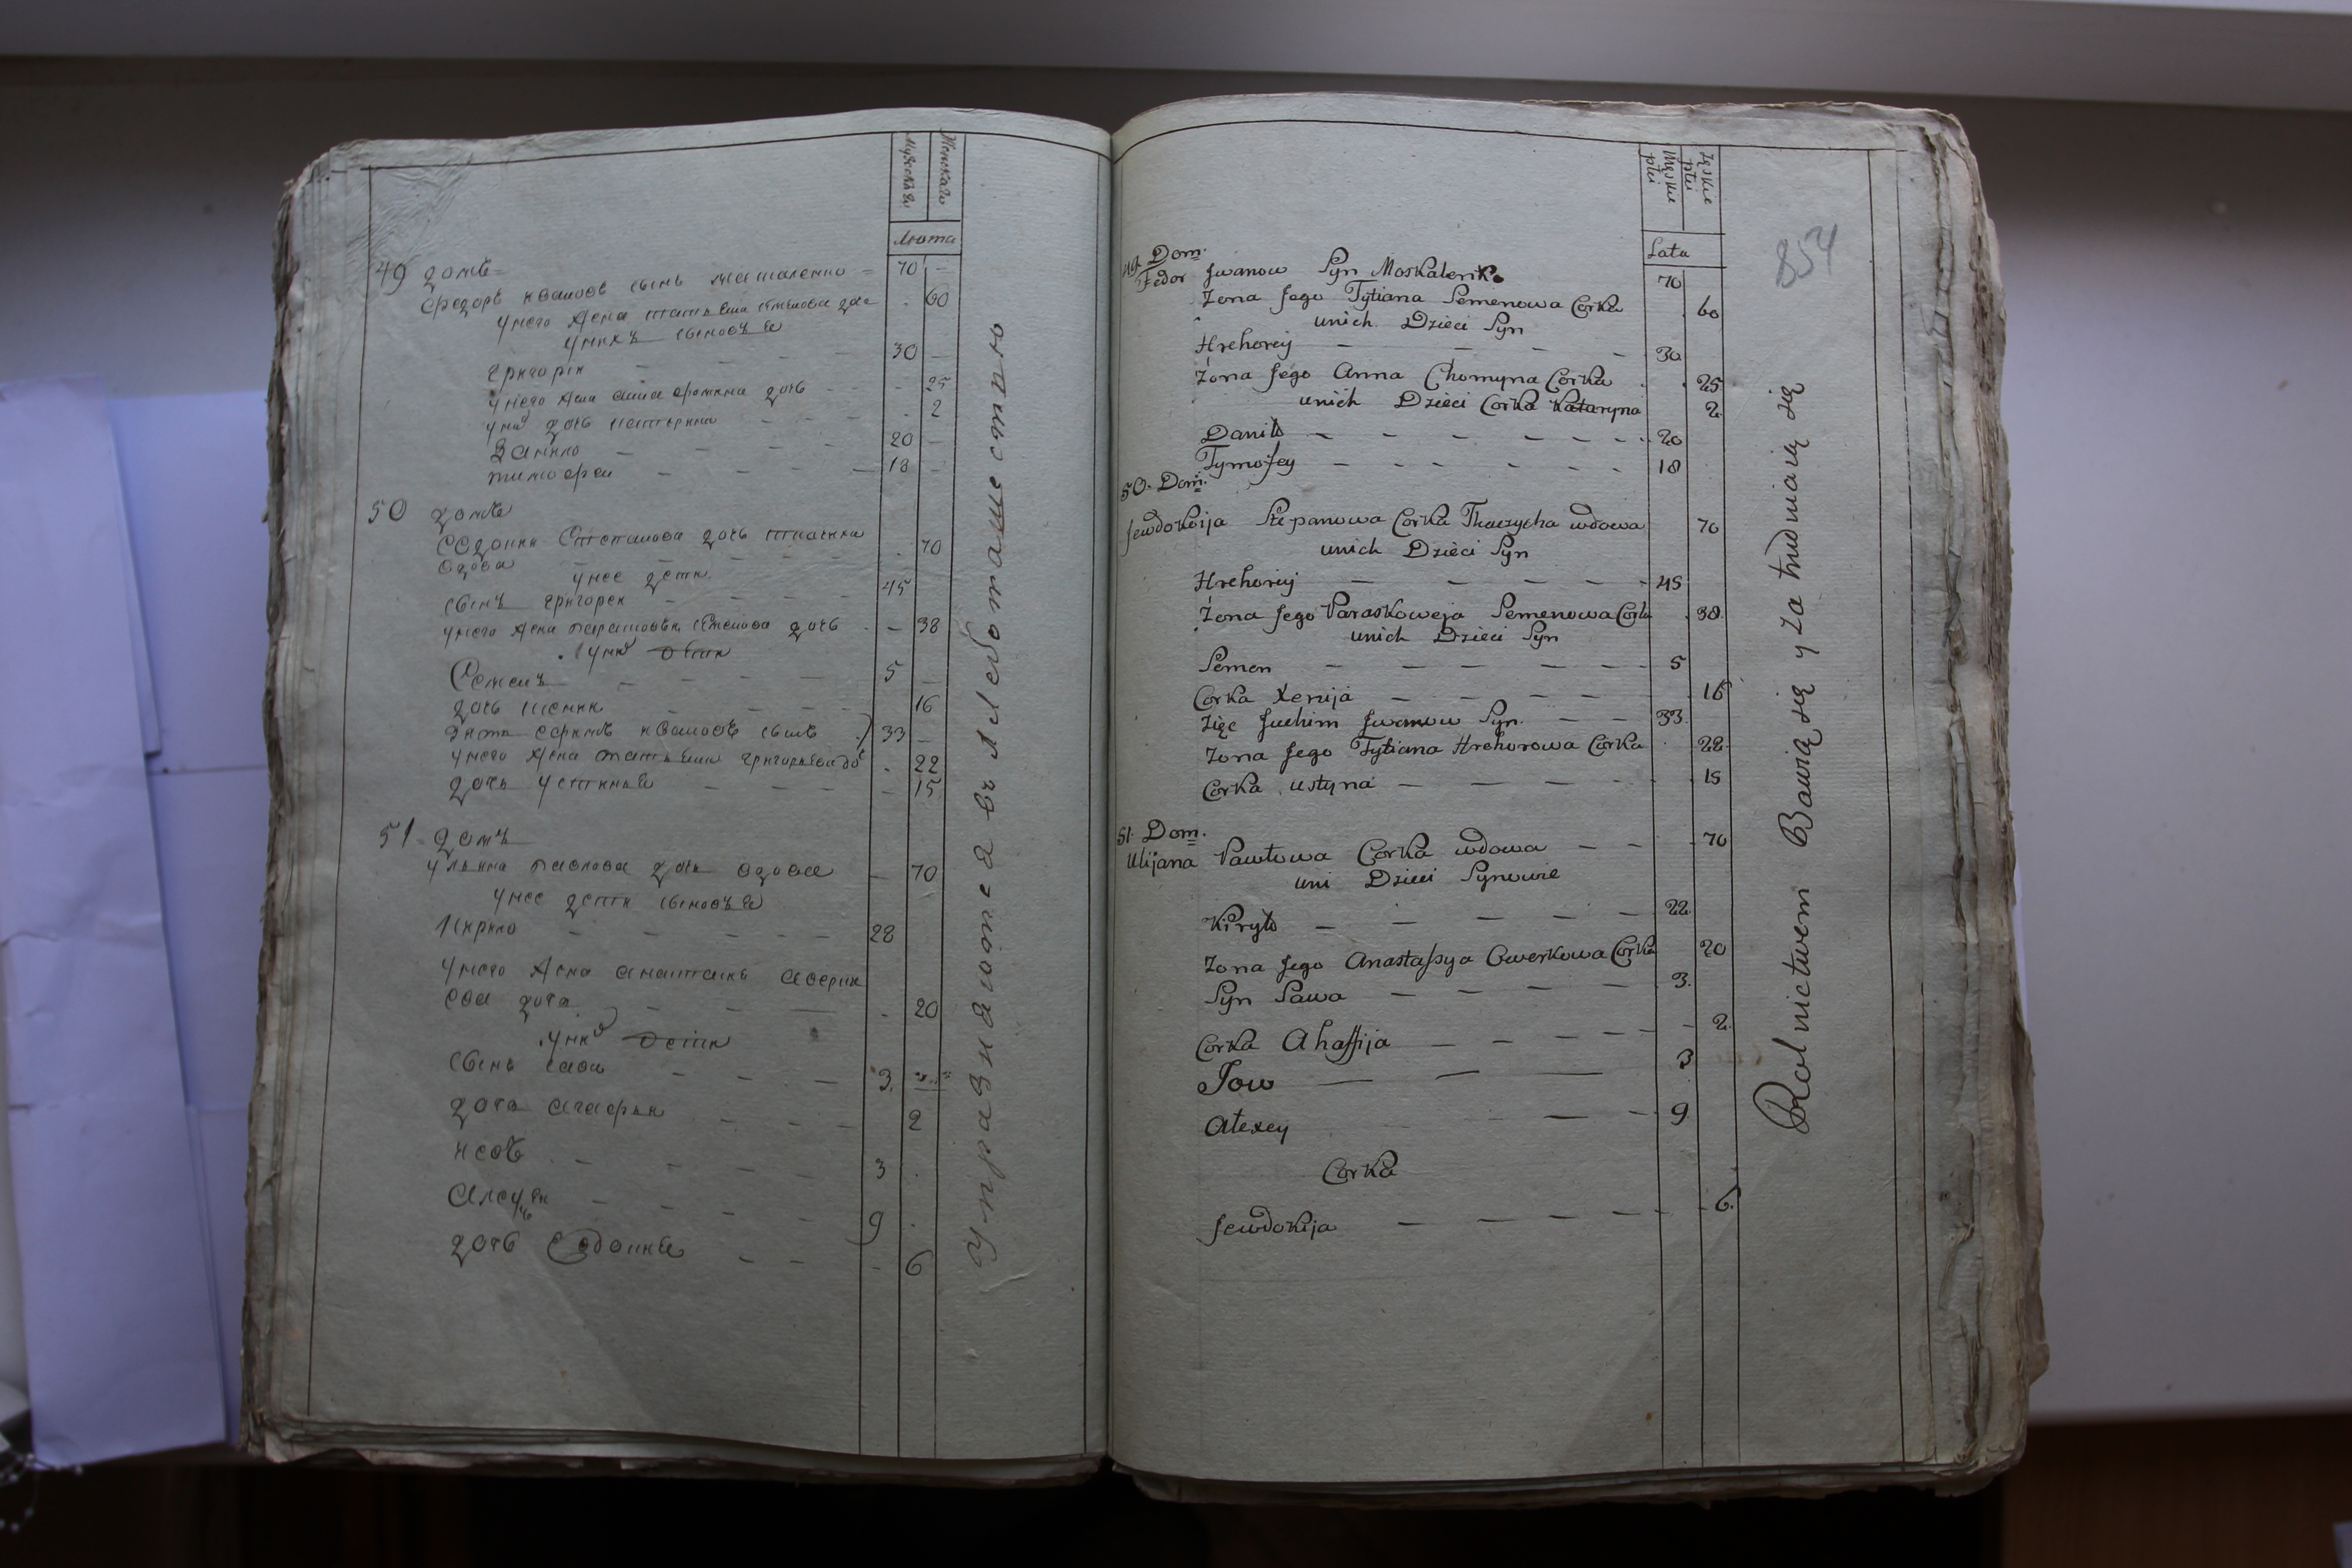 Мужеска
Женска
Лѣта
49 домъ
Федоръ Ивановъ сынъ Машаленко 70 —
у него жена Татьяна Семенова доч . 60
у нихъ сыновья
Григорій — — — 30 —
у него жена Анна Фомина дочь - 25
у них дочь Катерина . 2
Данило — — — 20 —
Тимофеи — — — 18 —
50 домъ
Евдокия Степанова дочь Ткачика
вдова . 70
у нее дети
сынъ Григорей — — 45
у него жена Парасковья Семенова дочь . — 38
у них дети
Семенъ — — — 5 —
дочь Ксения — — — 16
зять Ефимъ Ивановъ сынъ 33 —
у него жена Татьяна Григорьева до . 22
дочь Устинья — — — 15
51 домъ
Ульяна Павлова дочь вдова — 70
у нее дети сыновья
Кирило — — — 28
у него жена Анастасия Аверки
ева дочь — — — . 20
у них дети
сынъ Сава — — — 3.
дочь Агафия . — — — 2
Иовъ . — — — 3 .
Алексей — — — 9 .
дочь Евдокия — — - 6
Упражняются в хлебопашестию
Męskie płci
Zęskie płci
Lata
854
49. Dom.
Fedor Jwanow Syn Moskalenko 70
Żona Jego Tytiana Semenowa Corka . 60
unich Dzieci Syn
Hrehorey — — — - 30
Żona Jego Anna Chomyna Corka . . 25
unich Dzieci Corka Kataryna 2.
Daniło — — — — — — 20
Tymofey — — — — — — 18
50. Dom.
Jewdokija Stepanowa Corka Tkaczycha wdowa 70
unich Dzieci Syn
Hrehorey — — — — - 45
Żona Jego Paraskoweja Semenowa Corka . 38.
unich Dzieci Syn
Semen — — — — - 5
Corka Xenija — — — — - . 16
Zięc Juchim Jwanow Syn. — — 33.
Żona Jego Tytiana Hrehorowa Corka . 22.
Corka ustyna — — — — - 15
51. Dom.
Ulijana Pawłowa Corka wdowa — — . 70
uni Dzieci Synowie
Kiryło — — — — — 22.
Żona Jego Anastassya Owerkowa Corka 20
Syn Sawa — — — — 3.
Corka Ahaffija — — — — - 2.
Jow — — — 3
Alexey — — 9
Corka
Jewdokija — — — — - 6.
Rolnictwem Bawią się y Za trudniaią się